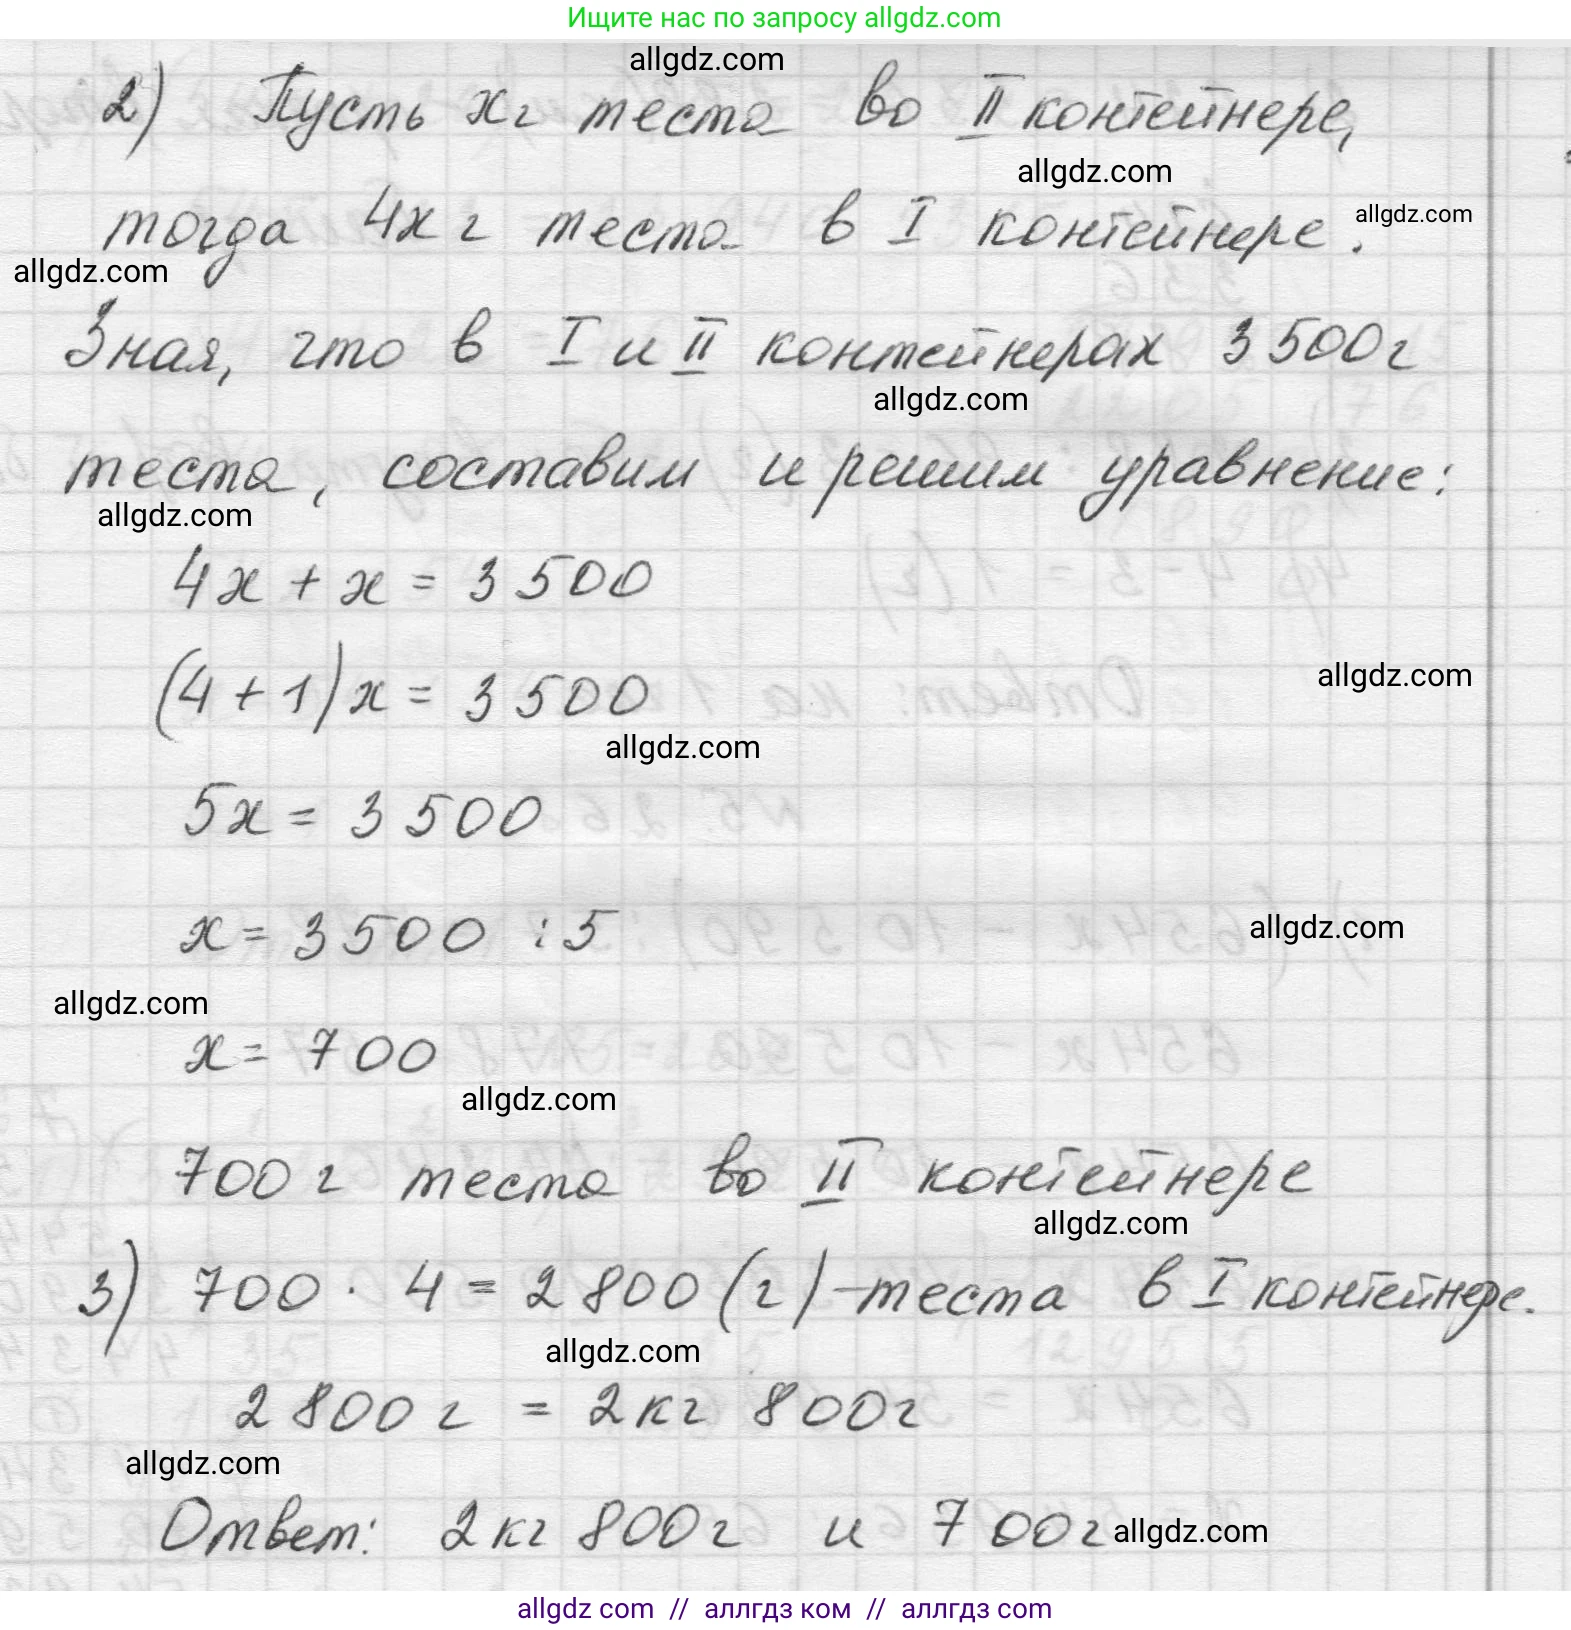 Ищите нас по запросу allgdz.com
allgdz.com
2) Пусть x г теста во II контейнере,
allgdz.com
тогда 4x г теста в I контейнере.
allgdz.com
allgdz.com
Зная, что в I и II контейнерах 3 500 г
allgdz.com
теста, составим и решим уравнение:
allgdz.com
4x + x = 3 500
(4 + 1)x = 3 500
allgdz.com
allgdz.com
5x = 3 500
x = 3 500 : 5
allgdz.com
allgdz.com
x = 700
allgdz.com
700 г теста во II контейнере
allgdz.com
3) 700 · 4 = 2 800 (г) - теста в I контейнере.
allgdz.com
2 800 г = 2 кг 800 г
allgdz.com
Ответ: 2 кг 800 г и 700 г
allgdz.com
allgdz com // аллгдз ком // аллгдз com